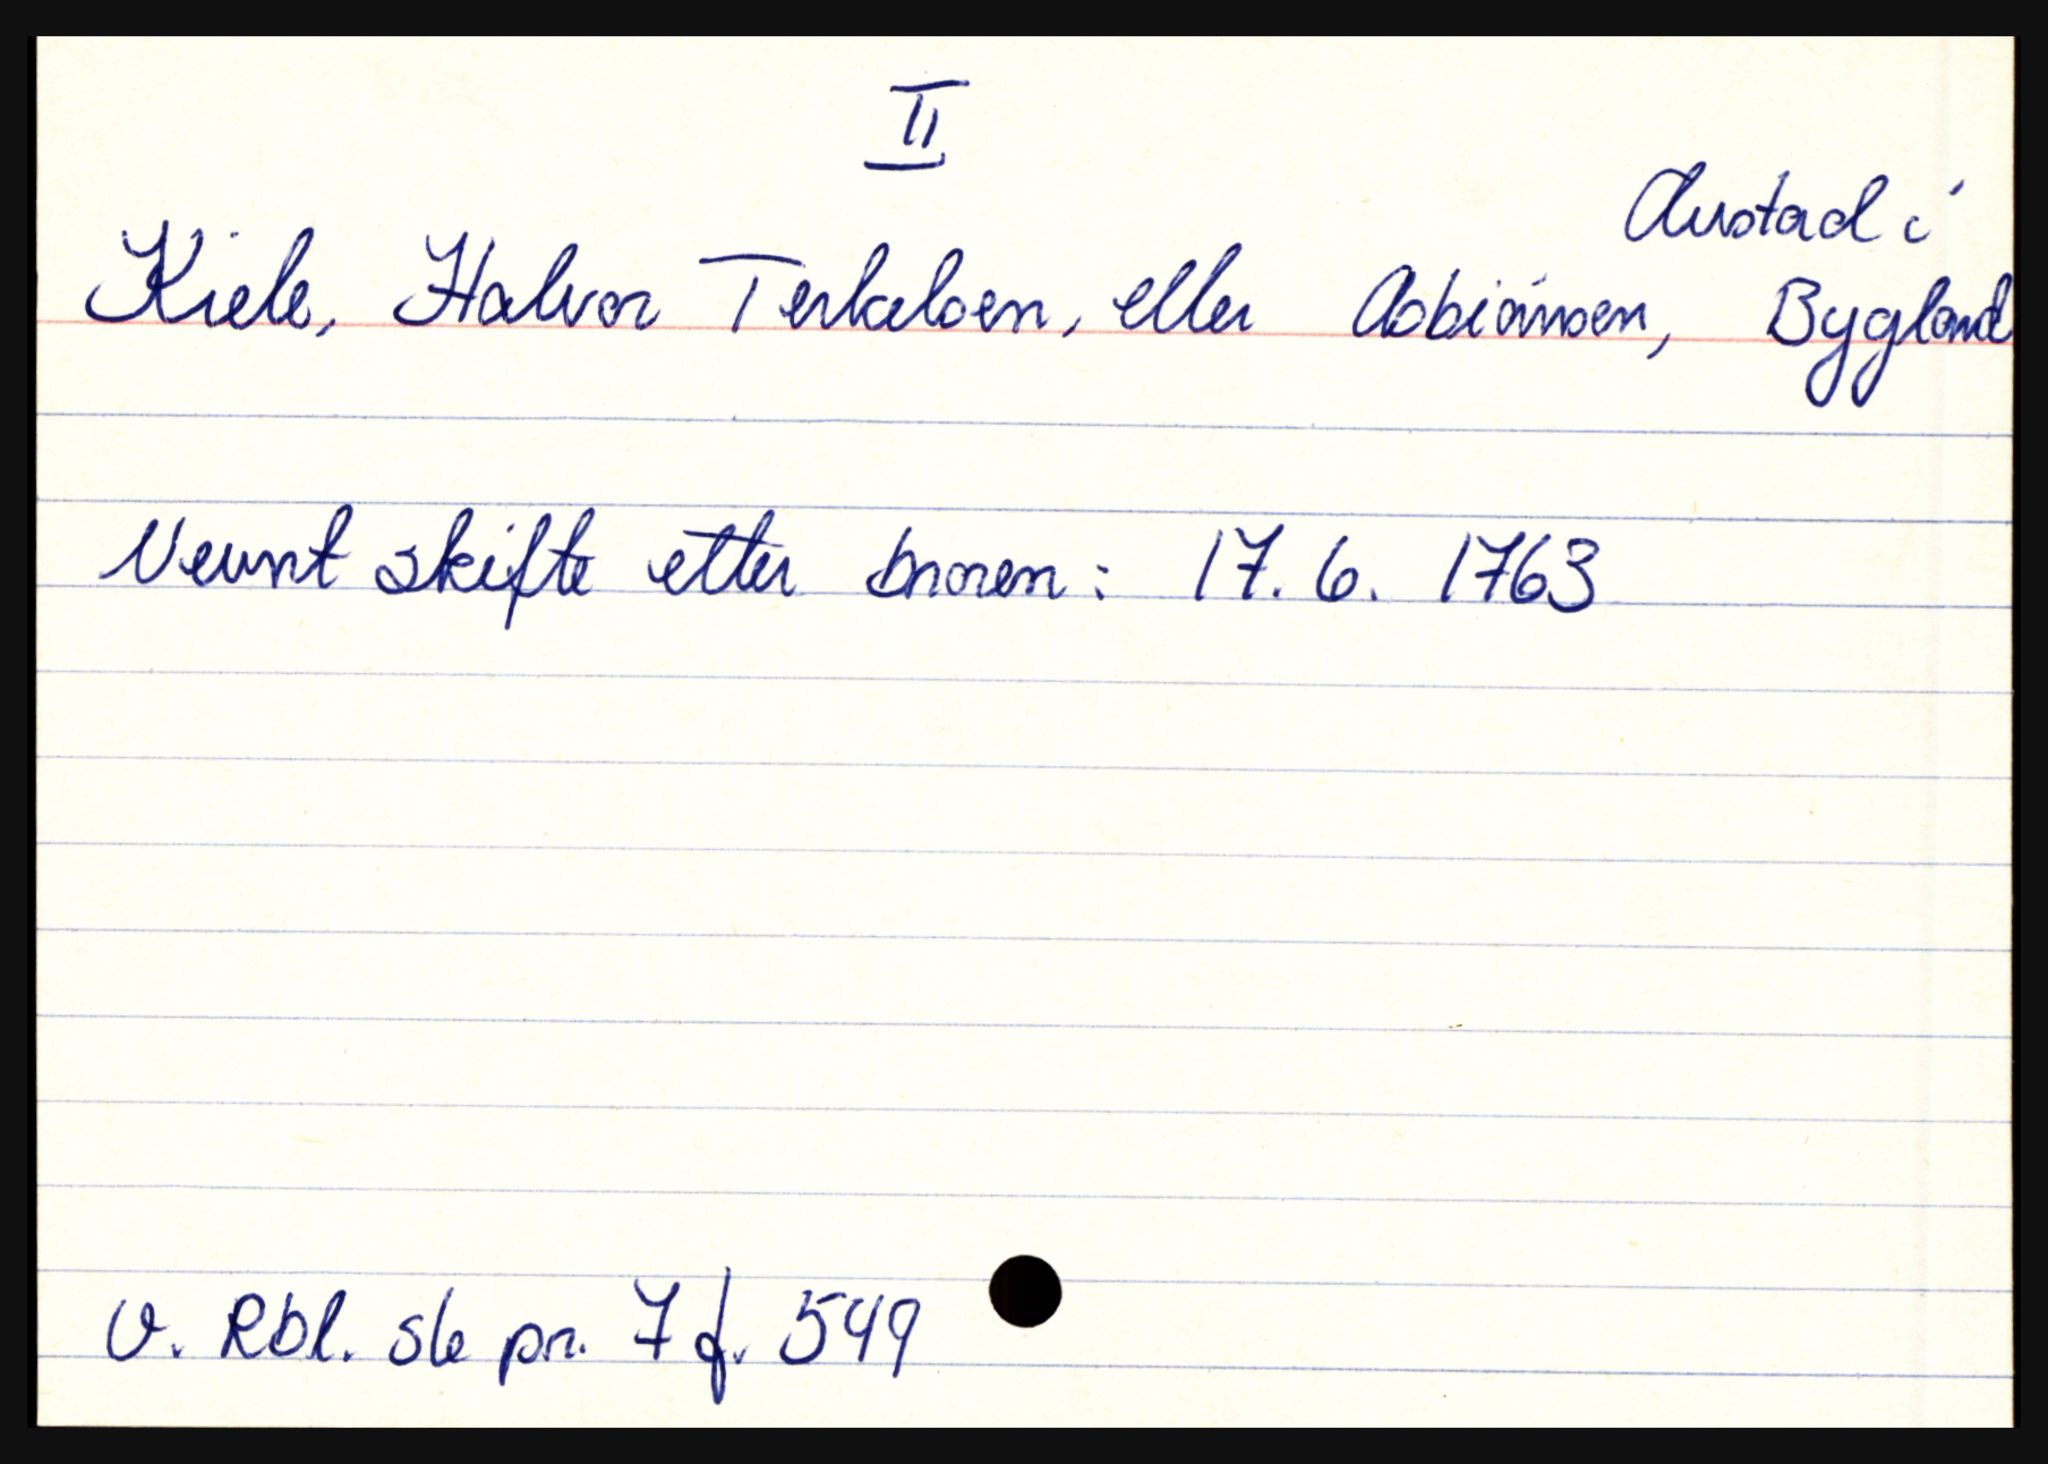 II
Austad i
Kiele, Halvor Terkelsen, eller Asbiønsen, Bygland
Nevnt skifte etter broren: 17. 6. 1763
V. Rbl. sk pr. 7 f. 549